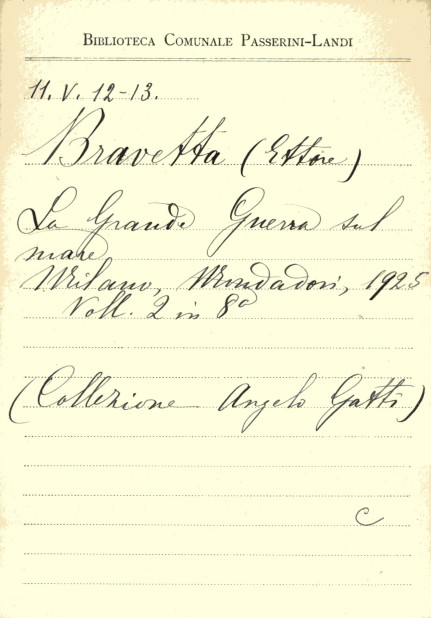 BIBLIOTECA COMUNALE PASSERINI-LANDI
11. V. 12-13.
Bravetta (Ettore)
La Grande Guerra sul
mare
Milano, Mondadori, 1925
Voll. 2 in 8°
(Collezione Angelo Gatti)
C